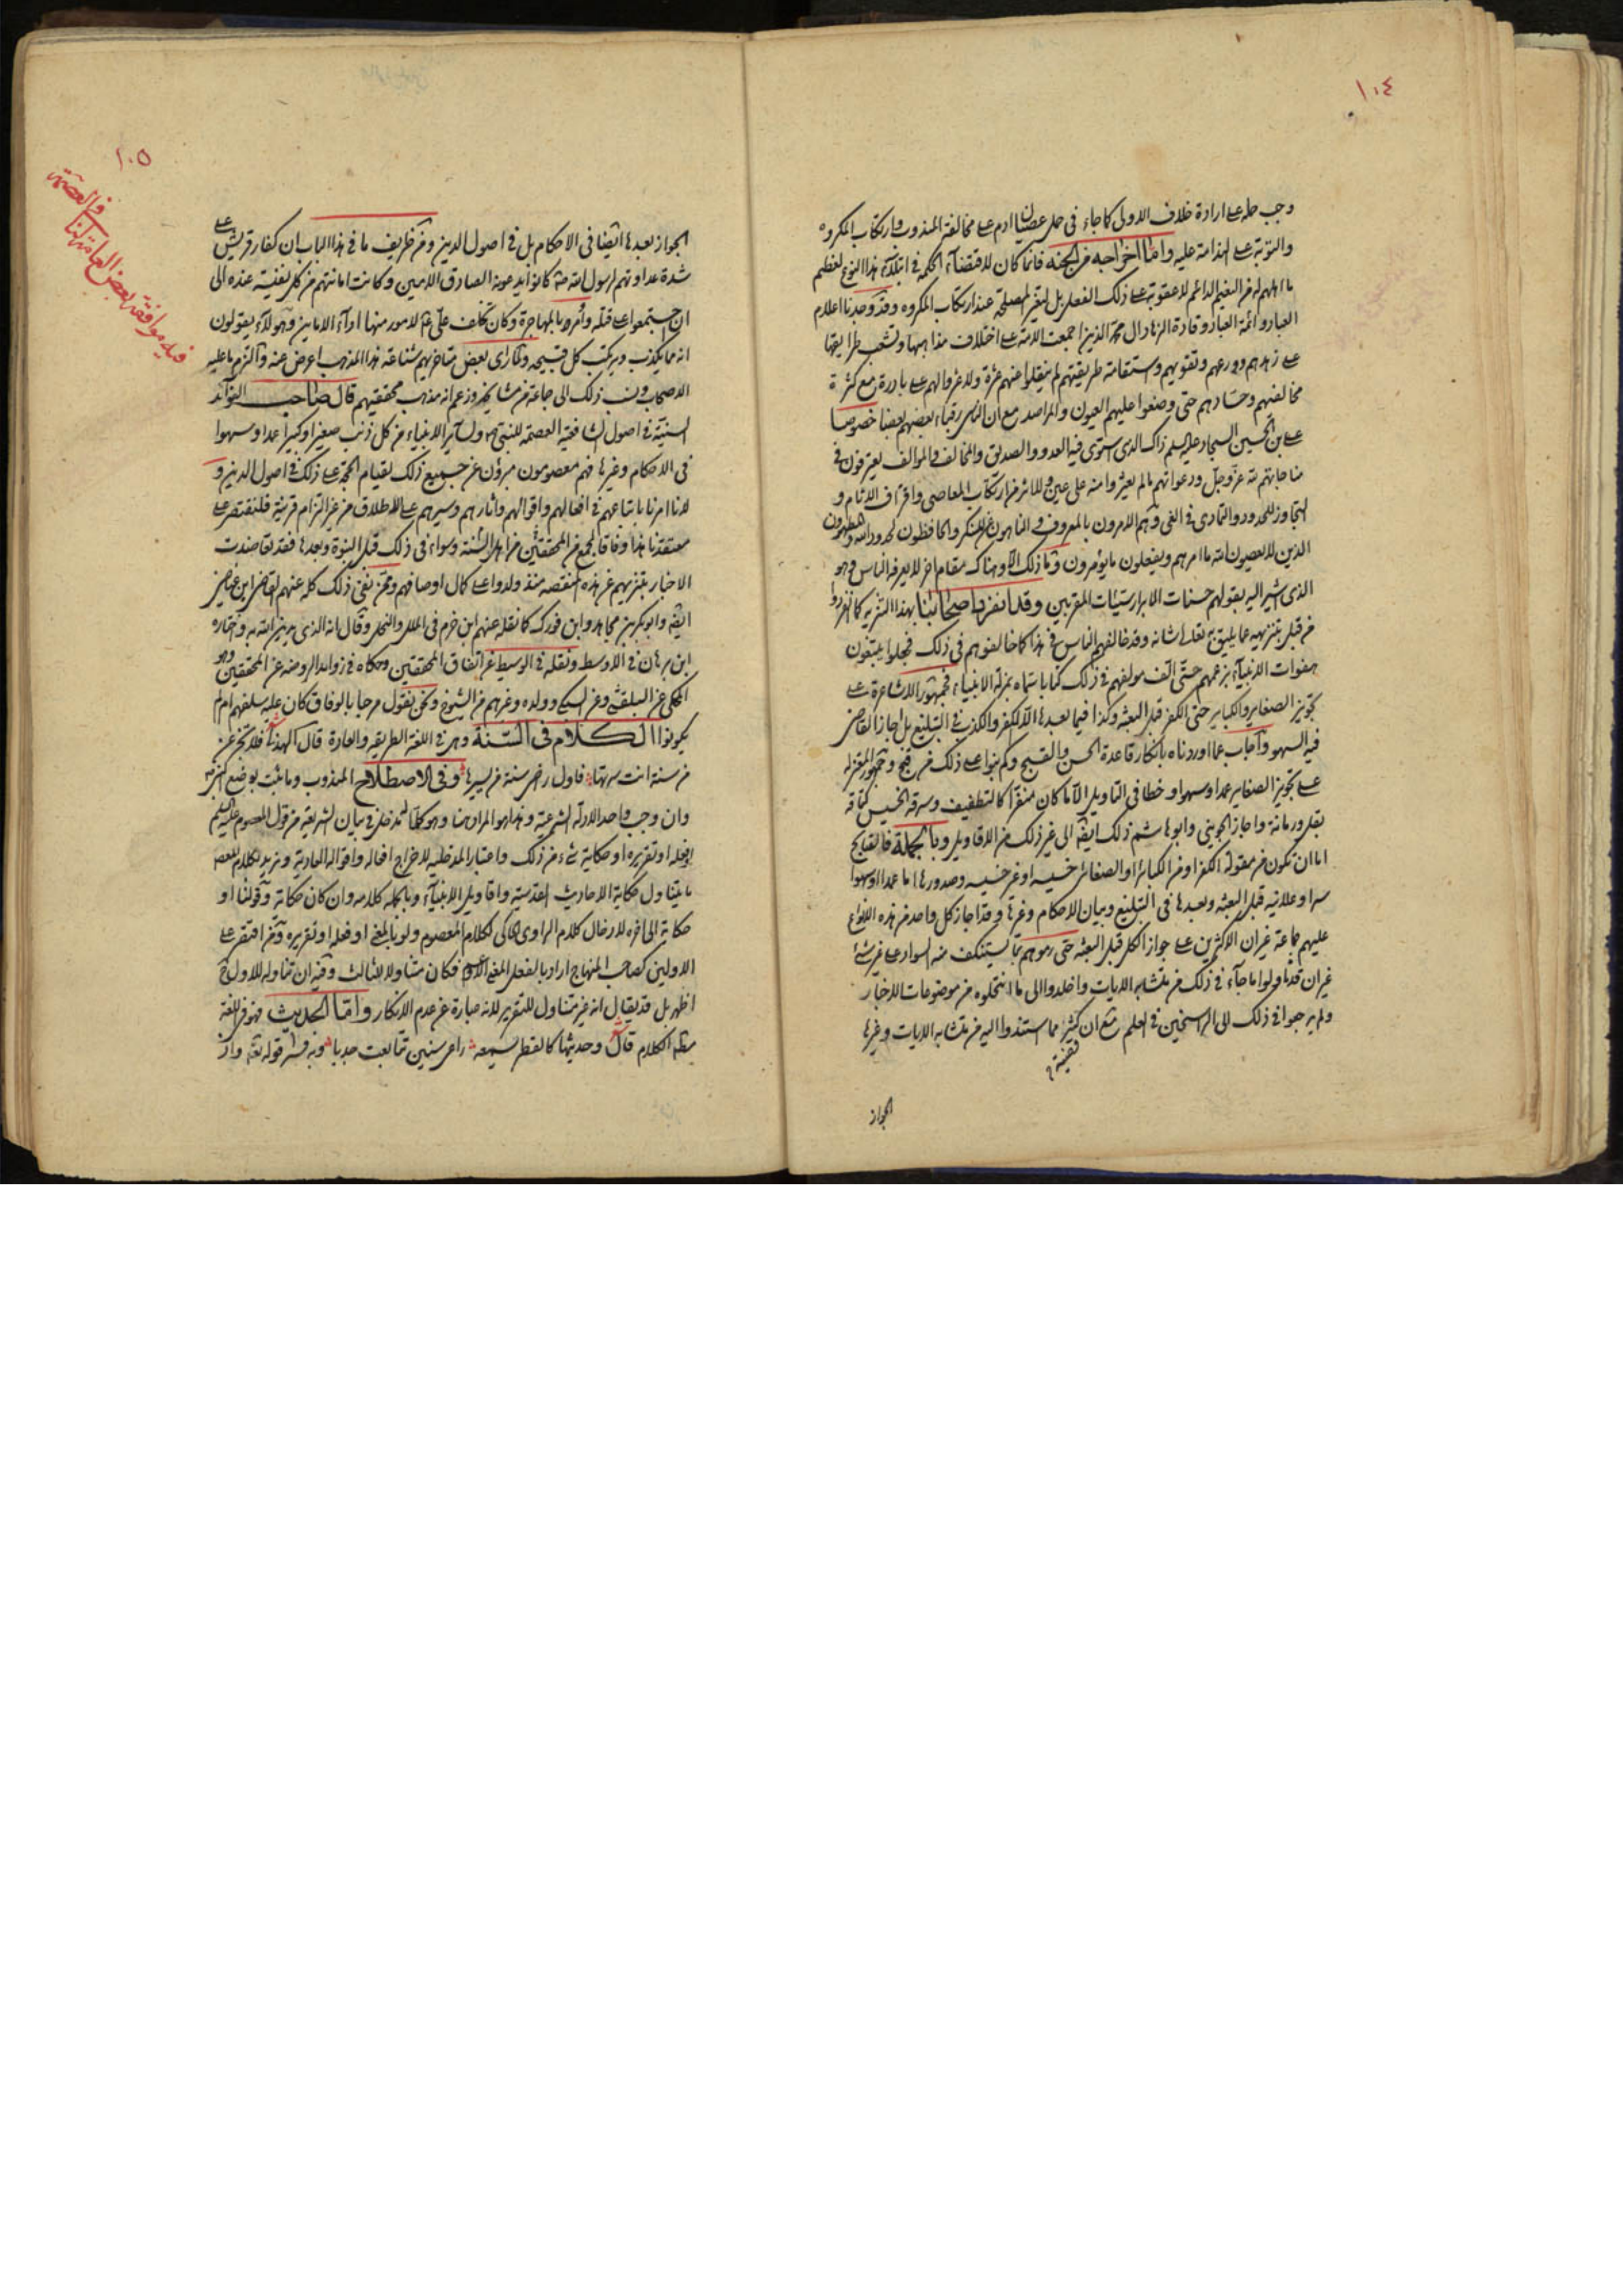 ١٠٤
وجب حمله على ارادة خلاف الاولى كما جاء فى حمل عصيان ادم على مخالفة المندوب وارتكاب المكروه
والتوبة على الندامة عليه واما اخراجه من الجنه فانما كان لاقتضاء الحكمة فى ابتلاء هذا النوع لعظيم
ما الهم له من النعيم الدائم لا عقوبة على ذلك الفعل بل لتغير المصلحة عند ارتكاب المكروه وقد وجدنا اعلام
العباد وائمة العباد وقادة الزهاد ال محمد الذين اجمعت الامة على اختلاف مذاهبها وتشعب طرايقها
على زهدهم وورعهم وتقويهم واستقامة طريقتهم لم ينقلوا عنهم عثرة ولا عزوا لهم على بادرة مع كثرة
مخالفيهم وحسادهم حتى وضعوا عليهم العيون والمراصد مع ان الناس رقباء بعضهم بعضا خصوصا
على بن الحسين السجاد عليه السلم ذاك الذى استوى فيه العدو والصديق والمخالف والموالف يعترفون فى
مناجاتهم لله عز وجل ودعواتهم بما لم يعثروا منه على عين ولا اثر من ارتكاب المعاصى واقتراف الاثام و
التجاوز للحدود والتمادى فى الغى وهم الامرون بالمعروف والناهون عن المنكر والحافظون لحدود الله والمطهرون
الذين لا يعصون الله ما امرهم ويفعلون ما يؤمرون وما ذلك الا وهناك مقام اخر لا يعرفه الناس وهو
الذى اشير اليه بقولهم حسنات الابرار سيئات المقربين وقد انفرد اصحابنا بهذا التنزيه كما انفردوا
من قبل بتنزيهه عما لا يليق به تعالى شانه وقد خالفهم الناس فى هذا كما خالفوهم فى ذلك فجعلوا يتبعون
هفوات الانبياء بزعمهم حتى الف مولفهم فى ذلك كتابا سماه بمزلة الانبياء فجمهور الاشاعرة على
تجويز الصغاير والكباير حتى الكفر قبل البعثه وكذا فيما بعدها الا الكفر والكذب فى التبليغ بل اجاز القاضى
فيه السهو واجاب عما اوردناه بانكار قاعدة الحسن والقبيح وكم بنوا على ذلك من قبح وجمهور المعتزله
على تجويز الصغاير عمدا وسهوا وخطا فى التاويل الا ما كان منفرا كالتطفيف وسرقة الخسيس كباقة
بقل ورمانة واجاز الجوينى وابو هاشم ذلك ايضه الى غير ذلك من الاقاويل وبالجملة فالقبايح
اما ان تكون من مقولة الكفر او من الكبائر او الصغائر خسيسه او غير خسيسه وصدورها اما عمدا او سهوا
سرا وعلانيه قبل البعثه وبعدها فى التبليغ وبيان الاحكام وغيرها وقد اجاز كل واحد من هذه الانواع
عليهم جماعة غير ان الاكثرين على جواز الكل قبل البعثه حتى رموهم بما يستنكف منه السواد على غير شئ
غير ان قدما ولوا ما جاء فى ذلك من متشابه الايات واخلدوا الى ما انتحلوه من موضوعات الاخبار
ولم يرجعوا فى ذلك الى الراسخين فى العلم مع ان كثيرا مما استندوا اليه من متشابه الايات وغيرها
الجواز
١٠٥
فيه موافقة بعض العامة لنا فى العصمة
الجواز بعدها ايضا فى الاحكام بل فى اصول الدين ومن ظريف ما فى هذا الباب ان كفار قريش على
شدة عداوتهم لرسول الله ص كانوا يدعونه الصادق الامين وكانت امانتهم من كل نفيسة عنده الى
ان اجتمعوا على قتله وامر بالمهاجرة وكان تخلف على ع لامور منها اداء الامانين وهولاء يقولون
انه مما يكذب ويرتكب كل قبيحه ولما راى بعض متاخريهم شناعة هذا المذهب اعرض عنه والتزم ما عليه
الاصحاب ونسب ذلك الى جماعة من مشايخهم وزعم انه مذهب محققيهم قال صاحب الفوائد
السنية فى اصول الشافعية العصمة للنبى ص ولساير الانبياء من كل ذنب صغيرا وكبيرا عمدا وسهوا
فى الاحكام وغيرها فهم معصومون مبرؤن عن جميع ذلك لقيام الحجة على ذلك فى اصول الدين و
لانا امرنا باتباعهم فى افعالهم واقوالهم واثارهم وسيرهم على الاطلاق من غير التزام قرينة فلنقتصر على
معتقدنا هذا وفاقا لجمع من المحققين من اهل السنة وسواء فى ذلك قبل النبوة وبعدها فقد تعاضدت
الاخبار بتنزيههم عن هذه المنقصه منذ ولدوا على كمال اوصافهم وممن نفى ذلك كله عنهم القاضى ابن عياض
ايضه وابو بكر بن مجاهد وابن فورك كما نقله عنهم ابن حزم فى الملل والنحل وقال انه الذى يدين الله به واختاره
ابن برهان فى الاوسط ونقله فى الوسيط عن اتفاق المحققين وحكاه فى زوايد الروضه عن المحققين وهو
المحكى عن البلقينى وعن السبكى وولده وغيرهم من الشيوخ ونحن نقول مرحبا بالوفاق كان عليه سلفهم ام لم
يكونوا الكلام فى السنة وهى فى اللغة الطريقه والعادة قال الهذلى فلا تجزعن
من سنة انت سرتها فاول راض سنة من يسيرها وفى الاصطلاح المندوب وما ثبت بوضع النبى ص
وان وجب واحد الادلة الشرعية وهذا هو المراد هنا وهو كلما له دخل فى بيان الشريعه من قول المعصوم عليه السلم
او فعله او تقريره او حكاية شئ من ذلك واعتبار المدخلية لاخراج افعاله واقواله العادية ونريد بكلام المعصوم
ما يتناول حكاية الاحاديث القدسية واقاويل الانبياء وبالجمله كلامه وان كان حكاية وقولنا او
حكاية الى اخره لادخال كلام الراوى الحاكى لكلام المعصوم ولو بالمعنى او فعله او تقريره ومن اقتصر على
الاولين كصاحب المنهاج اراد بالفعل المعنى الاعم فكان متناولا للثالث وفيه ان تناوله للاول ح
اظهر بل قد يقال انه غير متناول للتقرير لانه عبارة عن عدم الانكار واما الحديث فهو فى اللغة
مطلق الكلام قال وحديثها كالقطر يسمعه راعى سنين تتابعت جدبا وبه فسر قوله تعه واذ